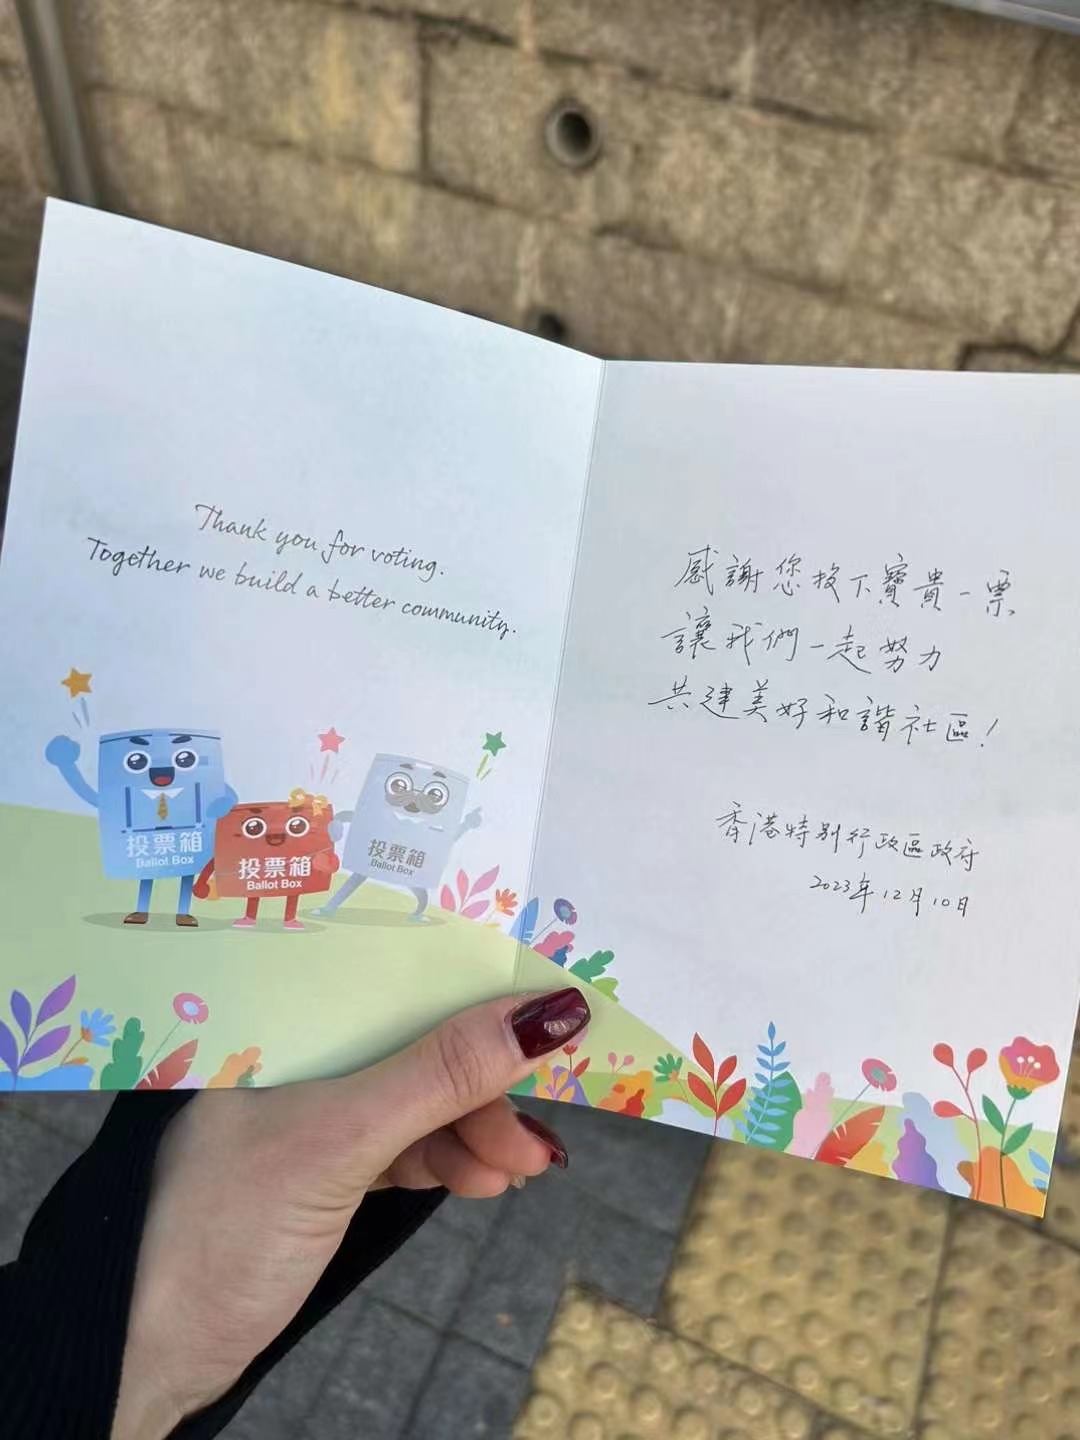 Thank you for voting.
Together we build a better community.
投票箱
Ballot Box
投票箱
Ballot Box
投票箱
Ballot Box
感謝您投下寶貴一票
讓我們一起努力
共建美好和諧社區！
香港特別行政區政府
2023年12月10日